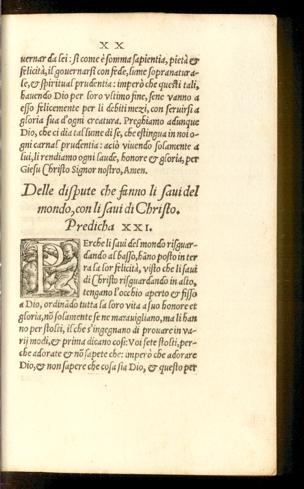 X X
uernar da lei: si come è somma sapientia, pietà &
felicità, il gouernarsi con fede, lume sopranatura-
le, & spiritual prudentia: imperò che questi tali,
hauendo Dio per loro vltimo fine, sene vanno a
esso felicemente per li debiti mezi, con seruirsi a
gloria sua d'ogni creatura. Preghiamo adunque
Dio, che ci dia tal lume di se, che estingua in noi o-
gni carnal prudentia: aciò viuendo solamente a
lui, li rendiamo ogni laude, honore & gloria, per
Giesu Christo Signor nostro, Amen.
Delle dispute che fanno li saui del
mondo, con li saui di Christo.
Predicha XXI.
PErche li saui del mondo risguar-
dando al basso, hāno posto in ter
ra la lor felicità, visto che li saui
di Christo risguardando in alto,
tengano l'occhio aperto & fisso
a Dio, ordināo tutta la sua vita a suo honore et
gloria, nō solamente se ne marauigliano, ma li han
no per stolti, il che s'ingegnano di prouare in va-
rij modi, & prima dicano cosi: Voi sete stolti, per-
che adorate & nō sapete che: imperò che adorare
Dio, & non sapere che cosa sia Dio, & questo per